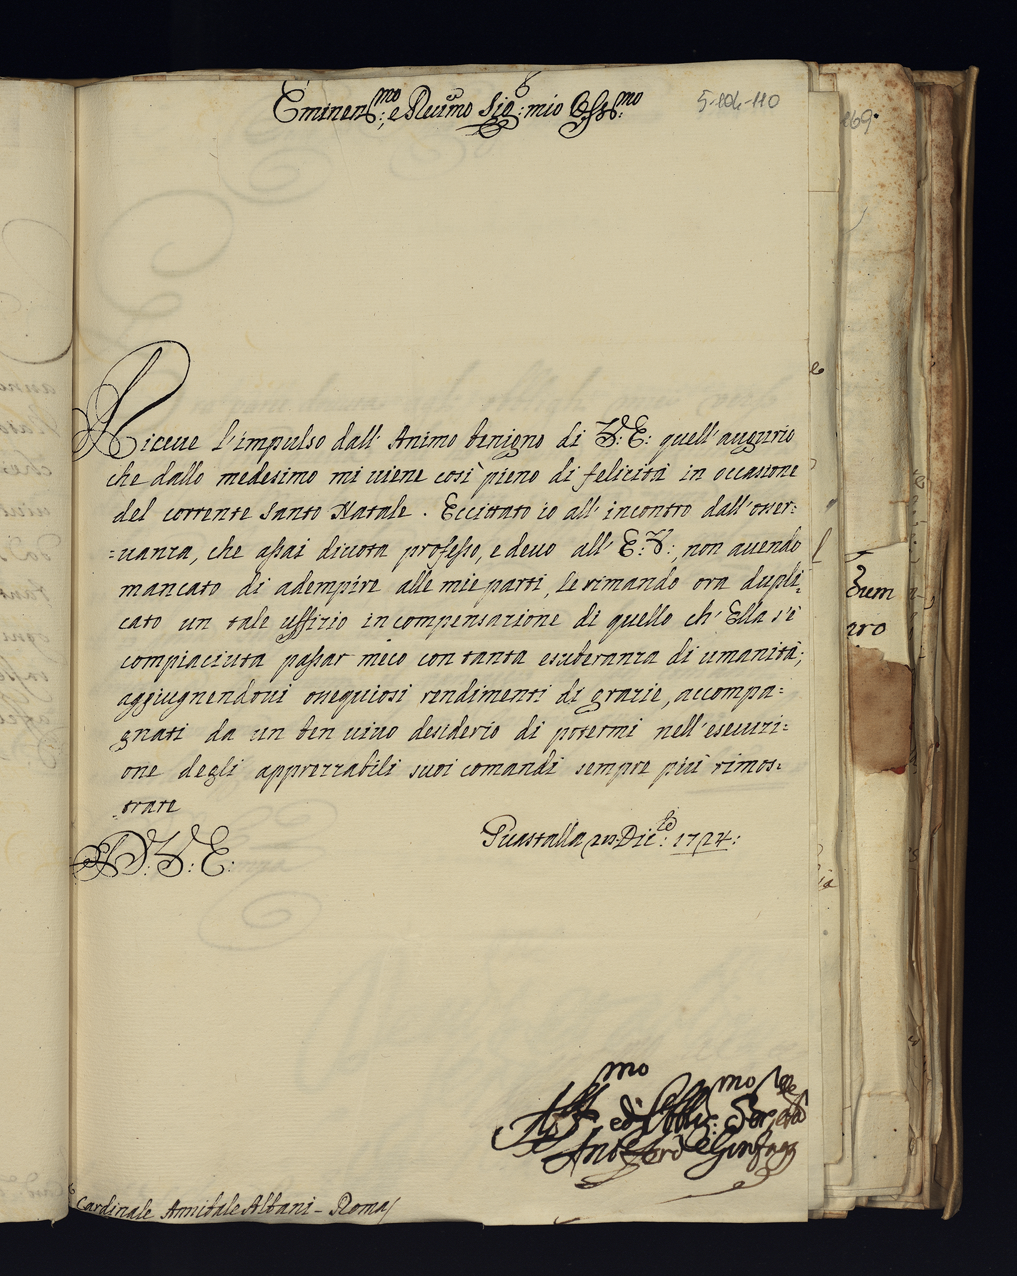 Eminen.mo, e Reumo Sig.r mio Oss.mo
5-104-110
169.
Riceue l'impulso dall' Animo benigno di V: E: quell'augurio
che dallo medesimo mi uiene così pieno di felicità in occasione
del corrente Santo Natale. Eccitato io all' incontro dall'osser:
=uanza, che assai diuota professo, e deuo all' E: V:, non auendo
mancato di adempire alle mie parti, le rimando ora dupli:
cato un tale uffizio in compensazione di quello ch' Ella s'è
compiaciuta passar meco con tanta esuberanza di umanità;
aggiugnendoui ossequiosi rendimenti di grazie, accompa=
gnati da un ben uiuo desiderio di potermi nell'esecuzi:
one degli apprezzabili suoi comandi sempre più rimos:
trare
D. V. E:
Guastalla 20 Dic.be: 1724:
Aff.mo ed Obblig.mo Ser.re
Ant Ferd Gonzaga
Cardinale Annibale Albani - Roma